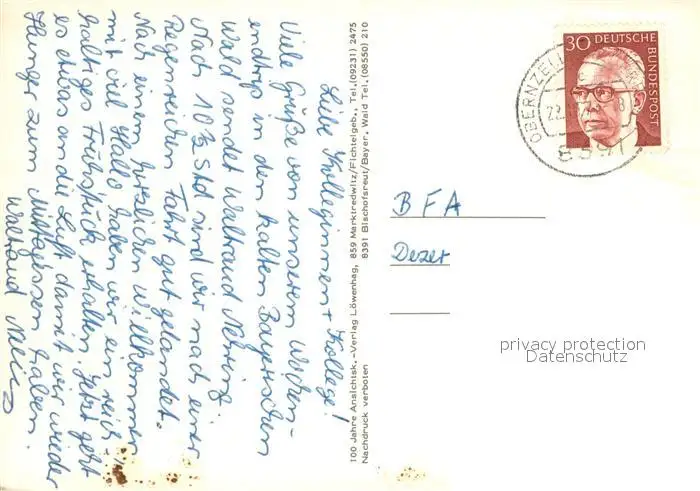 Liebe Kolleginnen + Kollege!
Viele Grüße von unserem Wochen-
endtrip in den kalten Bayerischen
Wald sendet Waltraud Nehring
Nach 10½ Std sind wir nach einer
Regenreichen Fahrt gut gelandet.
Nach einem herzlichen Willkommen
mit viel Hallo haben wir ein reich-
haltiges Frühstück erhalten. Jetzt geht
es etwas an die Luft damit wir wieder
Hunger zum Mittagessen haben.
Waltraud
100 Jahre Ansichtsk.-Verlag Löwenhag, 859 Marktredwitz/Fichtelgeb., Tel. (09231) 2475
8391 Bischofsreut/Bayer. Wald Tel. (08550) 210
Nachdruck verboten
30 DEUTSCHE
BUNDESPOST
OBERNZELL
8391
BFA
Dezer
privacy protection
Datenschutz